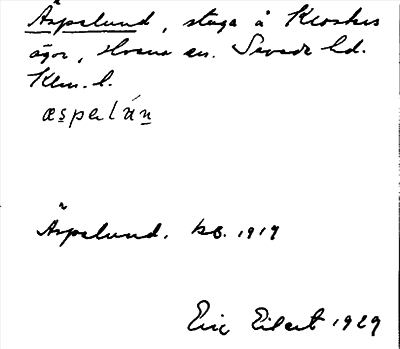 Äspelund, stuga å Kloster
ägor, Hvena sn. Sevede hd.
Klm. l.
æspelún
Äspelund. kb. 1917
Eric Eilert 1929